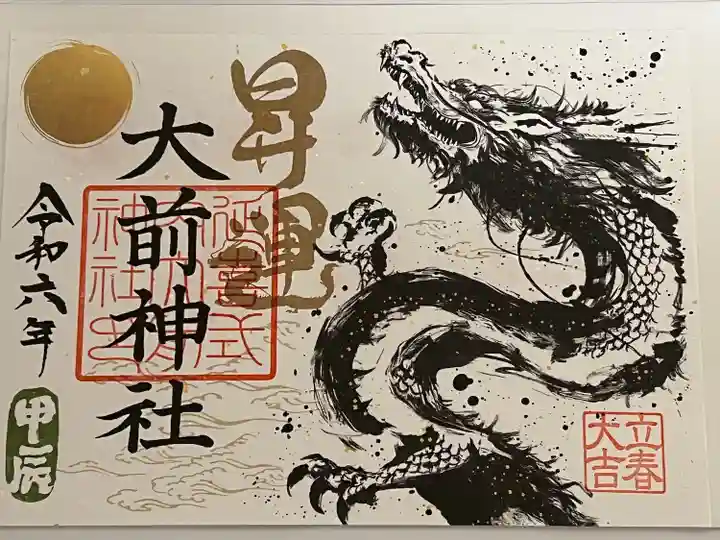 立春
大吉
昇運
大前神社
延喜式
神社
令和六年
甲辰